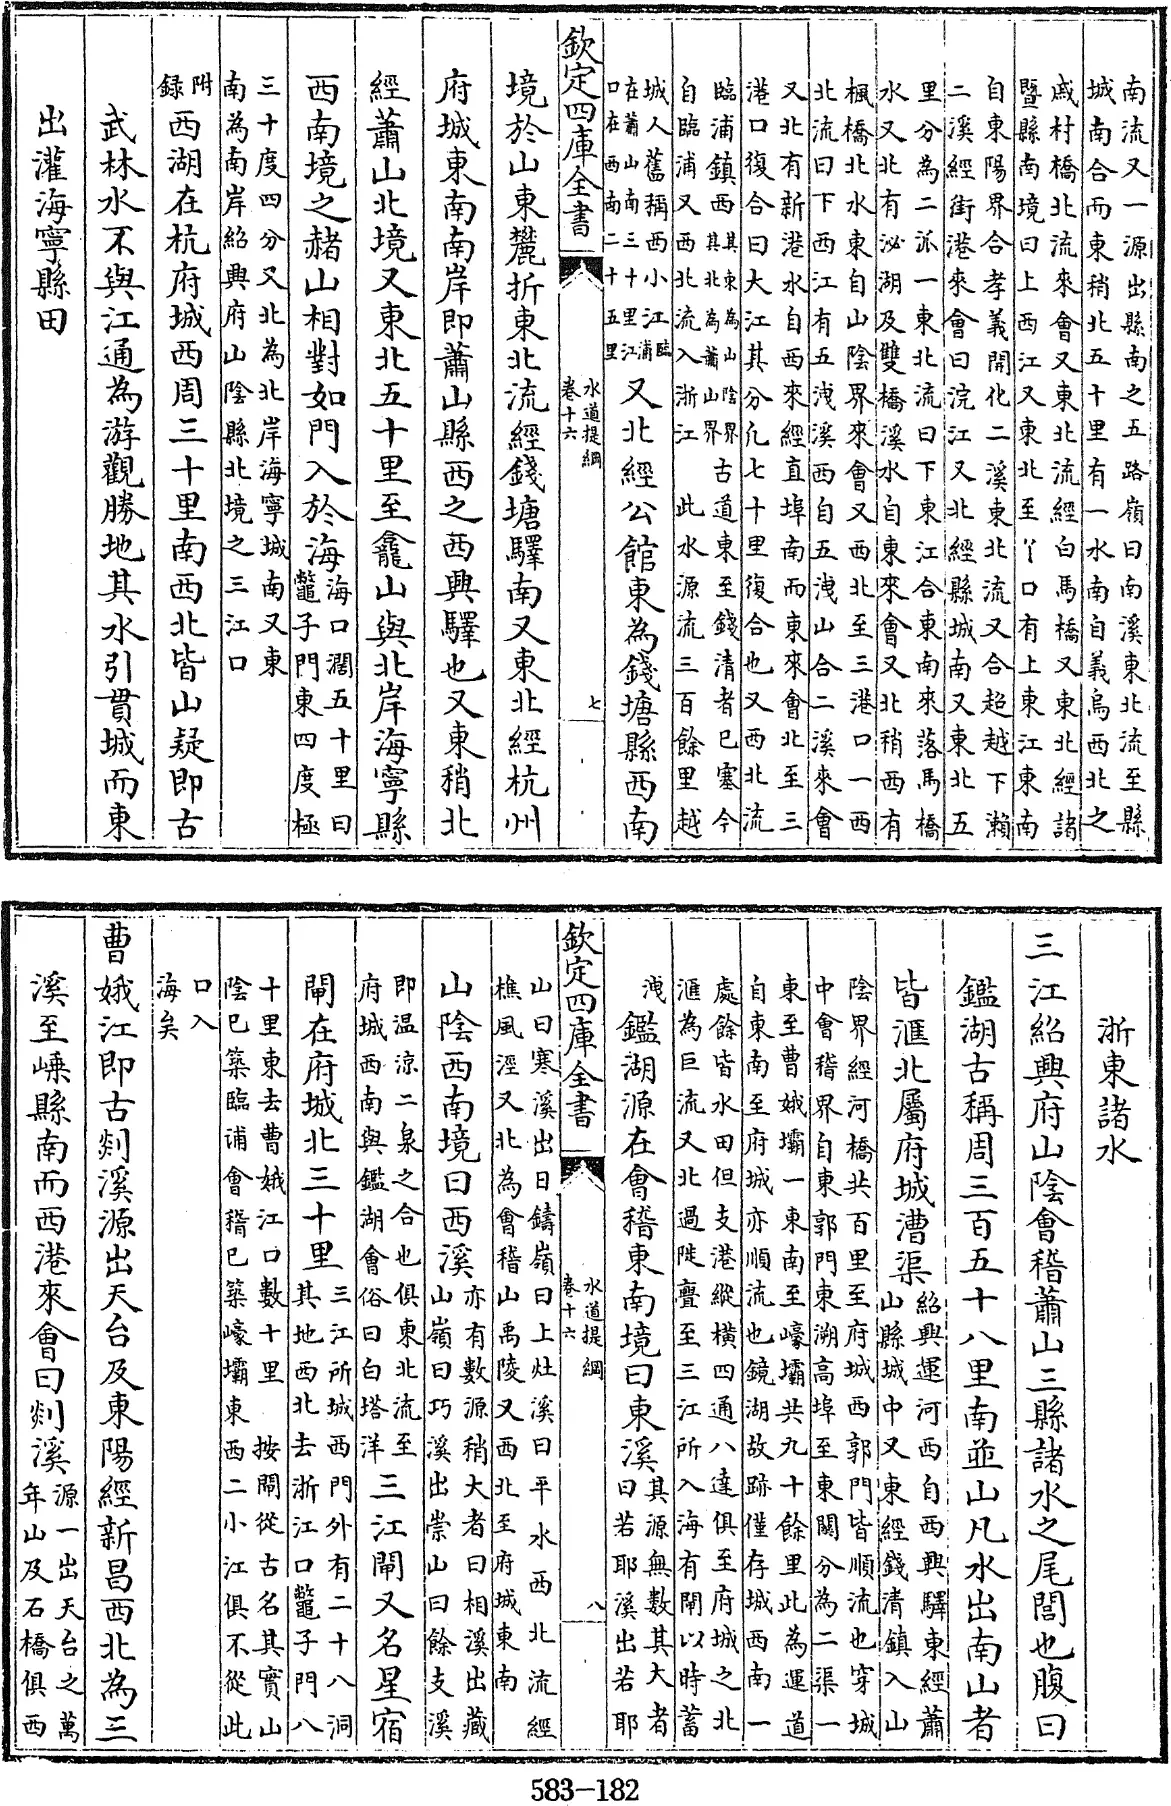 南流又一源出縣南之五路嶺曰南溪東北流至縣
城南合而東稍北五十里有一水南自義烏西北之
戚村橋北流來會又東北流經白馬橋又東北經諸
暨縣南境曰上西江又東北至丫口有上東江東南
自東陽界合孝義開化二溪東北流又合超越下瀨
二溪經街港來會曰浣江又北經縣城南又東北五
里分為二派一東北流曰下東江合東南來落馬橋
水又北有泌湖及雙橋溪水自東來會又北稍西有
楓橋北水東自山陰界來會又西北至三港口一西
北流曰下西江有五洩溪西自五洩山合二溪來會
又北有新港水自西來經直埠南而東來會北至三
港口復合曰大江其分凡七十里復合也又西北流
臨浦鎮西其東為山陰界其北為蕭山界古道東至錢清者已塞今
自臨浦又西北流入浙江 此水源流三百餘里越
城人舊稱西小江臨浦在蕭山南三十里江口在西南二十五里又北經公館東為錢塘縣西南
欽定四庫全書 水道提綱 卷十六 七
境於山東麓折東北流經錢塘驛南又東北經杭州
府城東南南岸即蕭山縣西之西興驛也又東稍北
經蕭山北境又東北五十里至龕山與北岸海寧縣
西南境之赭山相對如門入於海海口濶五十里曰
鼈子門東四度極
三十度四分又北為北岸海寧城南又東
南為南岸紹興府山陰縣北境之三江口
附録西湖在杭府城西周三十里南西北皆山疑即古
武林水不與江通為游觀勝地其水引貫城而東
出灌海寧縣田
浙東諸水
三江紹興府山陰會稽蕭山三縣諸水之尾閭也腹曰
鑑湖古稱周三百五十八里南並山凡水出南山者
皆滙北屬府城漕渠紹興運河西自西興驛東經蕭
山縣城中又東經錢清鎮入山
陰界經河橋共百里至府城西郭門皆順流也穿城
中會稽界自東郭門東溯高埠至東關分為二渠一
東至曹娥壩一東南至嶀壩共九十餘里此為運道
自東南至府城亦順流也鏡湖故跡僅存城西南一
處餘皆水田但支港縱橫四通八達俱至府城之北
滙為巨流又北過陡亹至三江所入海有閘以時蓄
洩 鑑湖源在會稽東南境曰東溪其源無數其大者
曰若耶溪出若耶
山曰寒溪出日鑄嶺曰上灶溪曰平水西北流經
樵風涇又北為會稽山禹陵又西北至府城東南
欽定四庫全書 水道提綱 卷十六 八
山陰西南境曰西溪亦有數源稍大者曰相溪出藏
山嶺曰巧溪出崇山曰餘支溪
即温凉二泉之合也俱東北流至
府城西南與鑑湖會俗曰白塔洋三江閘又名星宿
閘在府城北三十里三江所城西門外有二十八洞
其地西北去浙江口鼈子門八
十里東去曹娥江口數十里 按閘從古名其實山
陰已築臨浦會稽已築嶀壩東西二小江俱不從此
口入
海矣
曹娥江即古剡溪源出天台及東陽經新昌西北為三
溪至嵊縣南而西港來會曰剡溪源一出天台之萬
年山及石橋俱西
583-182